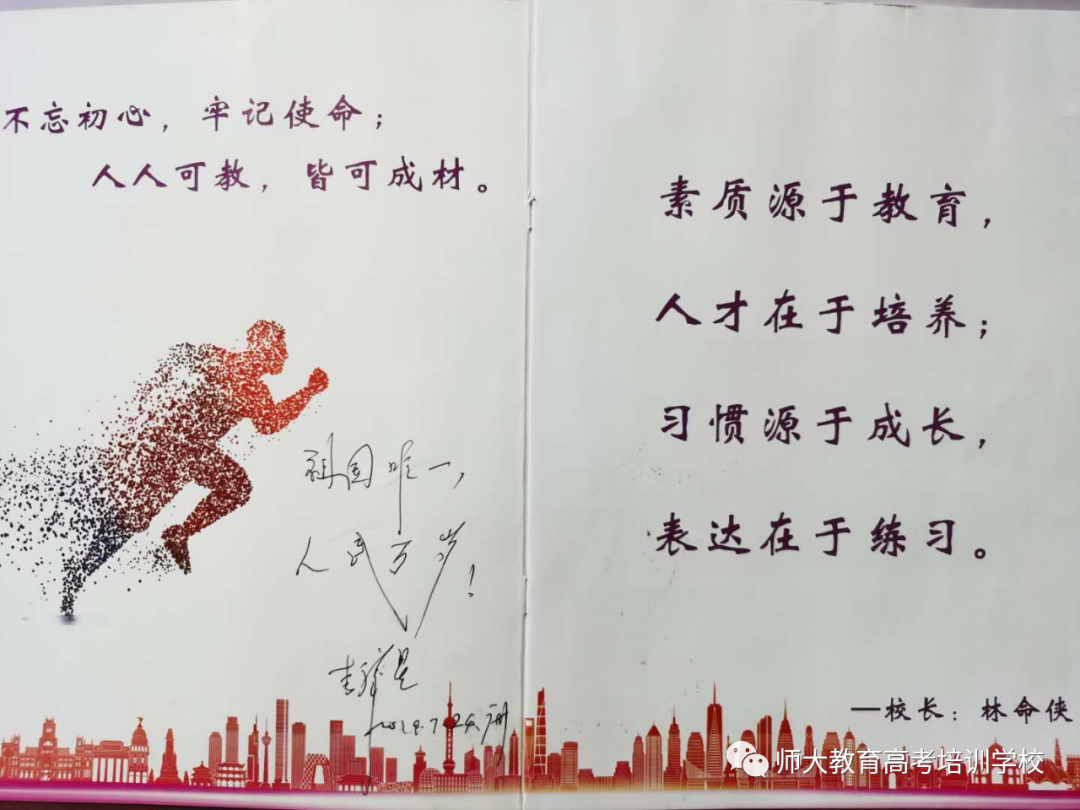 不忘初心，牢记使命；
人人可教，皆可成材。
祖国唯一，
人民万岁！
素质源于教育，
人才在于培养；
习惯源于成长，
表达在于练习。
—校长：林命侠
师大教育高考培训学校